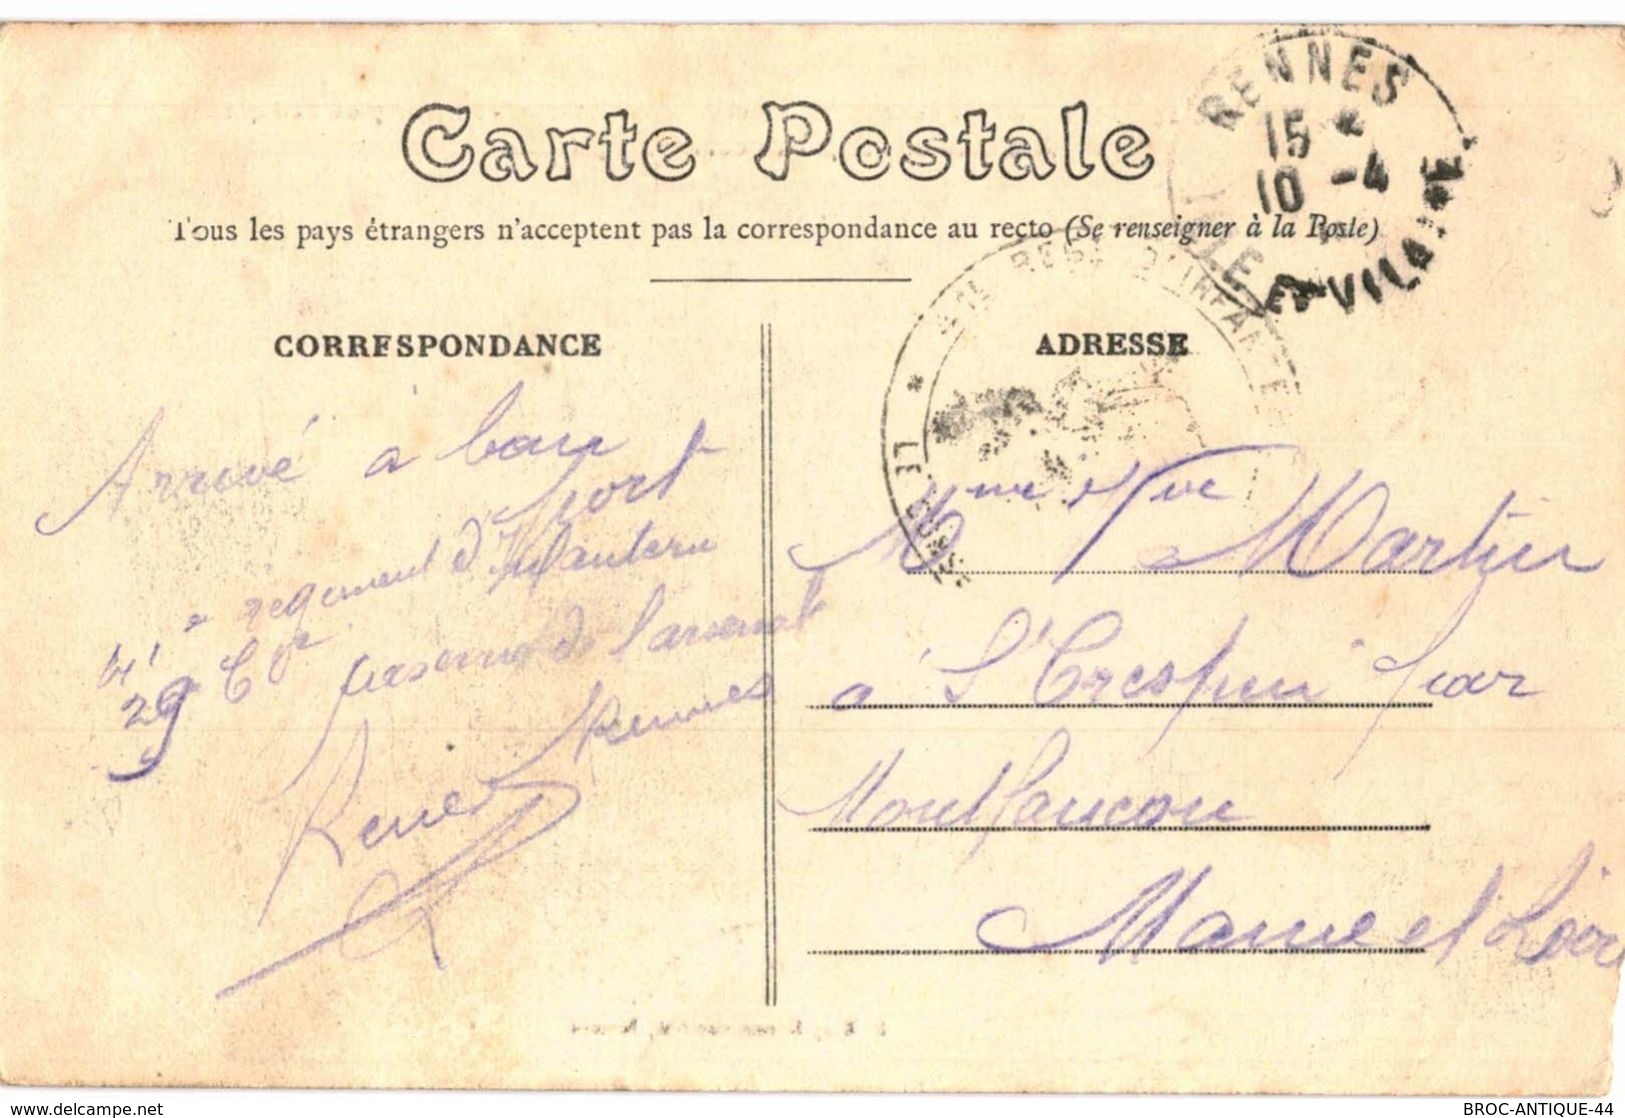 Carte Postale
Tous les pays étrangers n'acceptent pas la correspondance au recto (Se renseigner à la Poste)
RENNES
15 *
10 -4
ILLE ET VILAINE
41e REGt D'INFANTERIE
* LE
CORRESPONDANCE
ADRESSE
Arrivé à bon
port
41e regiment d'Infanterie
29e Cie caserne de l'arsenal
Rennes
René
Mme Vve Martin
à St Crespin par
Montfaucon
Maine et Loire
delcampe.net
BROC-ANTIQUE-44